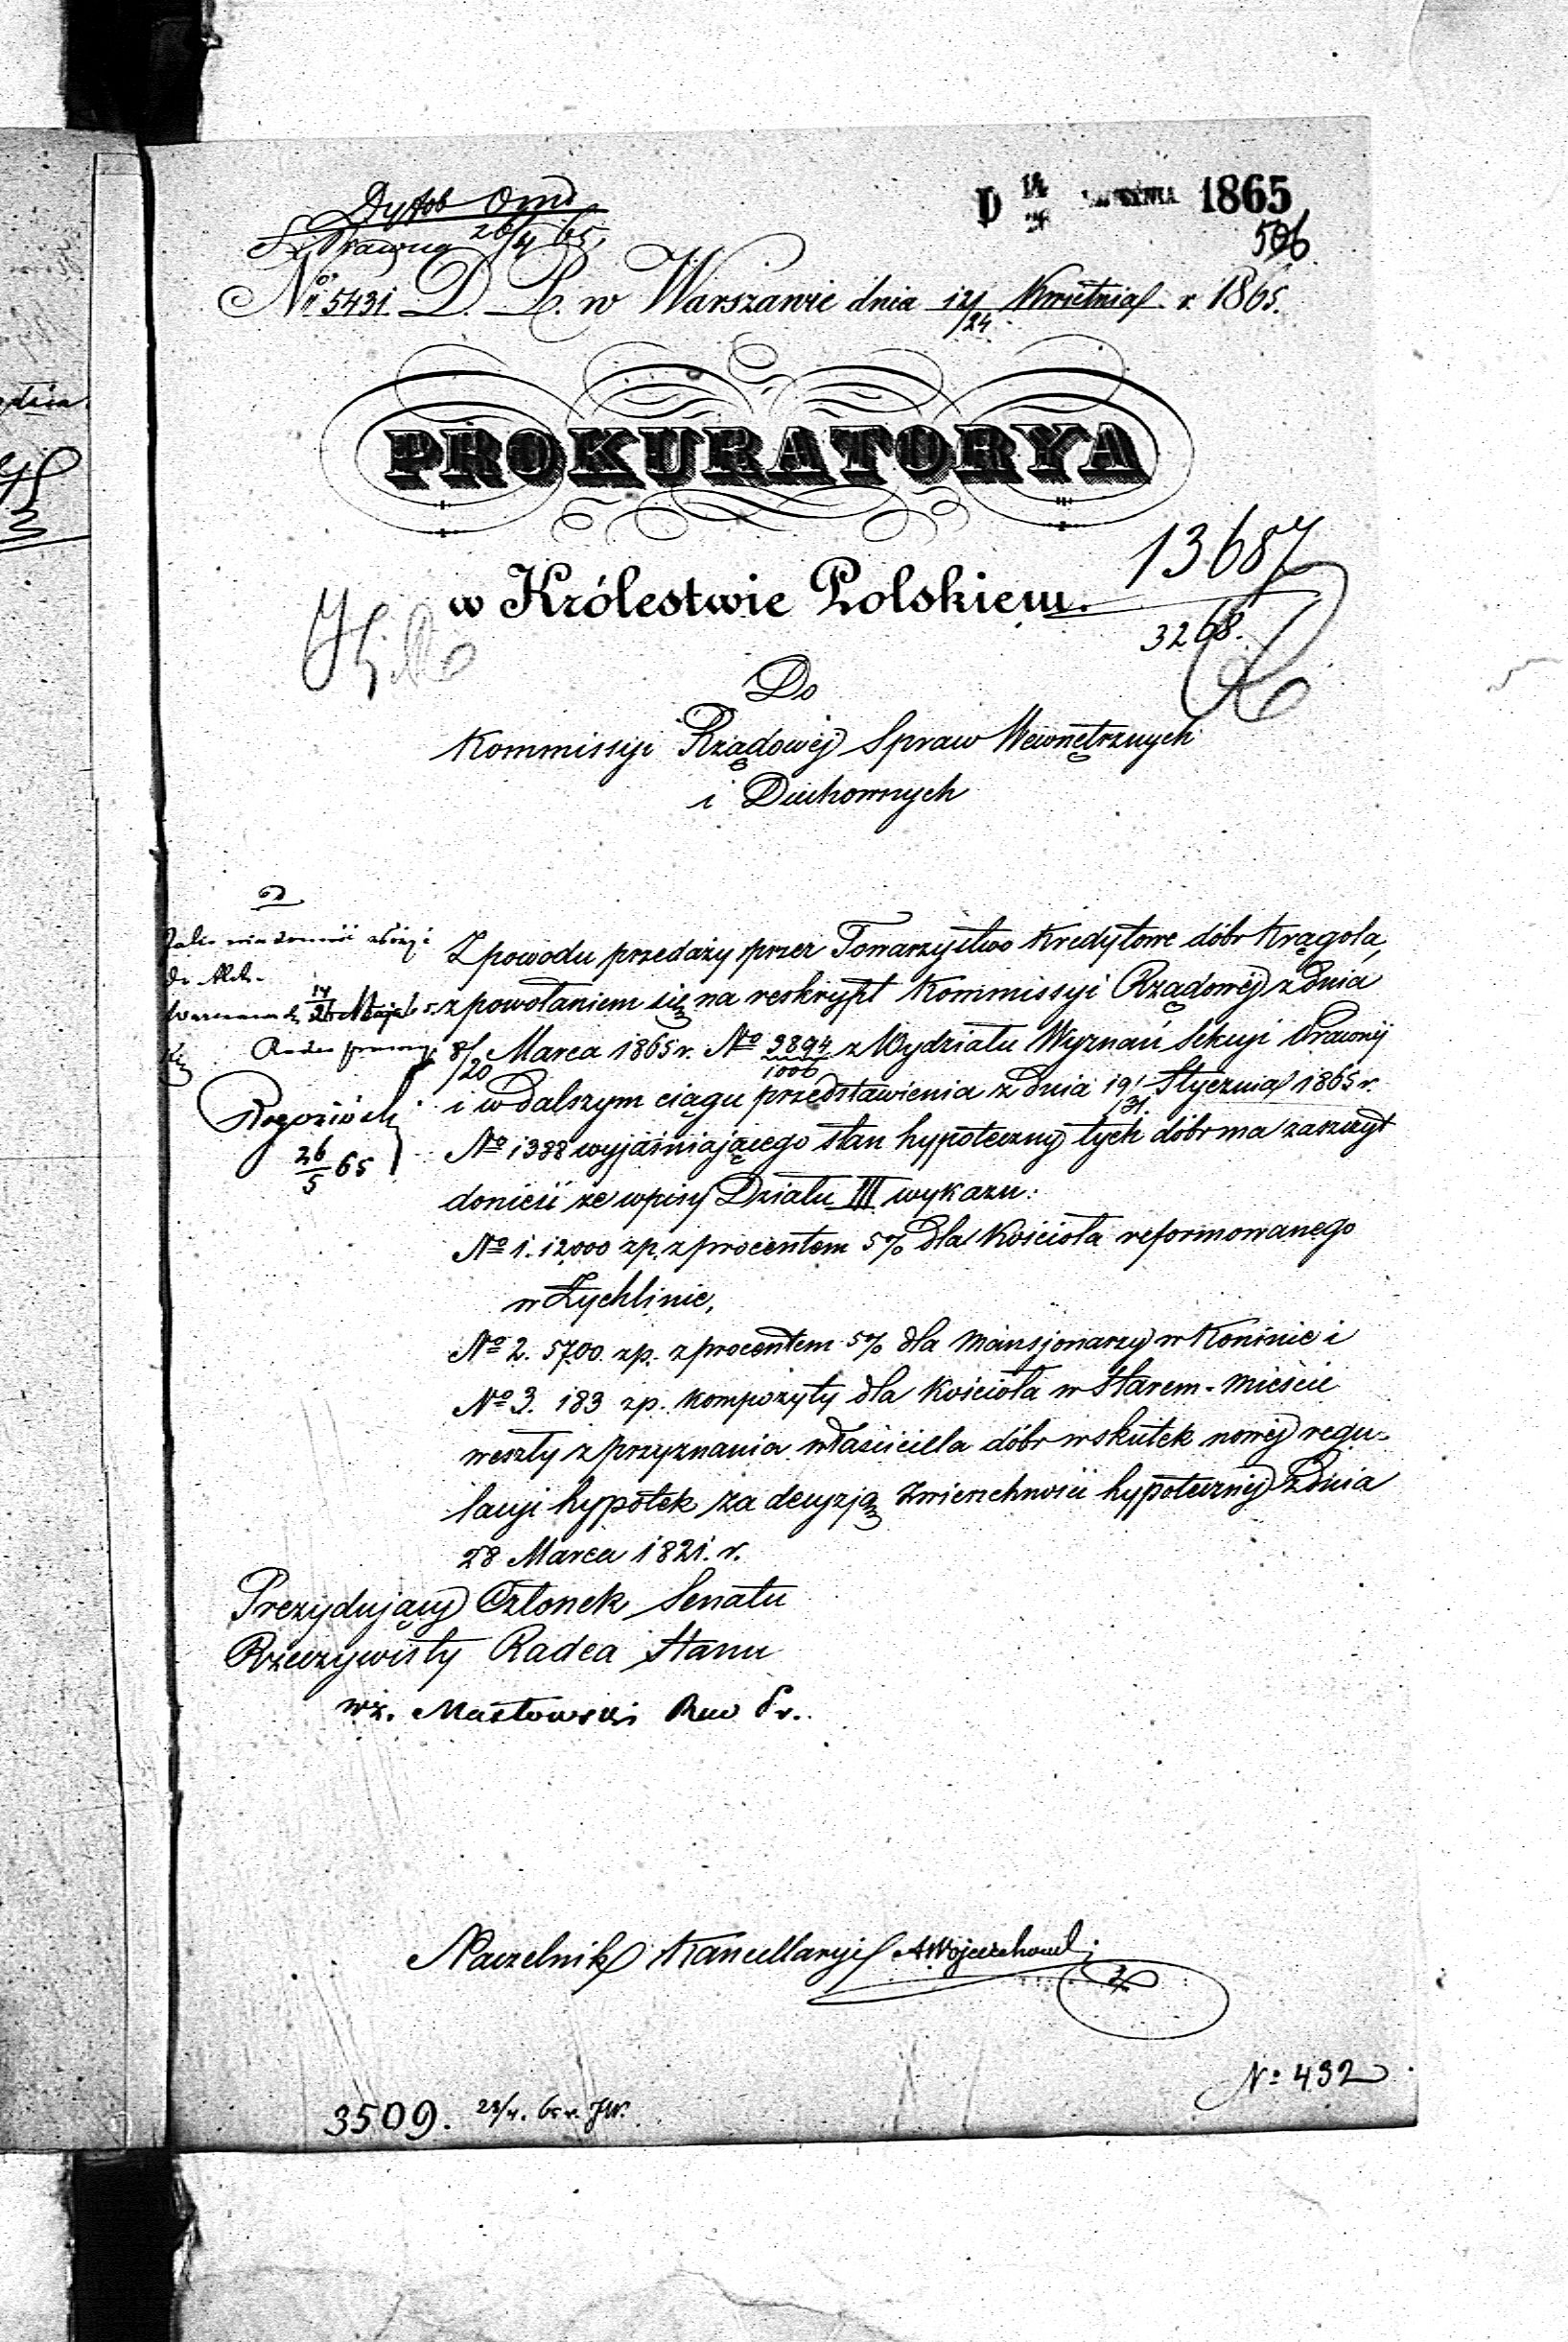 D 14/26 KWIETNIA 1865
506
Prawna 26/4 65.
No 5431 D. P. w Warszawie dnia 12/24 Kwietnia r. 1865.
PROKURATORYA
w Królestwie Polskiem.
13687
3268.
Do
Kommissyi Rządowéj Spraw Wewnętrznych
i Duchownych
Jako wiadomość złożyć
do Akt.
Warszawa d. 14/26 Maja 65.
Radca prawny
Rogoziński
26/5 65
Z powodu przedaży przez Towarzystwo Kredytowe dóbr Krągola,
z powołaniem się na reskrypt Kommissyi Rządowéj z dnia
8/20 Marca 1865 r. No 9894/1006 z Wydziału Wyznań Sekcyi Prawnéj
i w dalszym ciągu przedstawienia z dnia 19/31. Stycznia 1865 r.
No 1388 wyjaśniającego stan hypoteczny tych dóbr ma zaszczyt
donieść że wpisy Działu III wykazu:
No 1. 12000 zp. z procentem 5% dla Kościoła reformowanego
w Żychlinie,
No 2. 5700 zp. z procentem 5% dla Mansjonarzy w Koninie i
No 3. 183 zp. kompozyty dla Kościoła w Starem-Mieście
weszły z przyznania właściciela dóbr wskutek nowéj regu-
lacyi hypotek za decyzją Zwierzchności hypotecznéj z dnia
28 Marca 1821. r.
Prezydujący Członek Senatu
Rzeczywisty Radca Stanu
wz. Masłowski
Naczelnik Kancellaryi AWojciechowski
No 432
3509. 28/4. 65 r. JW.